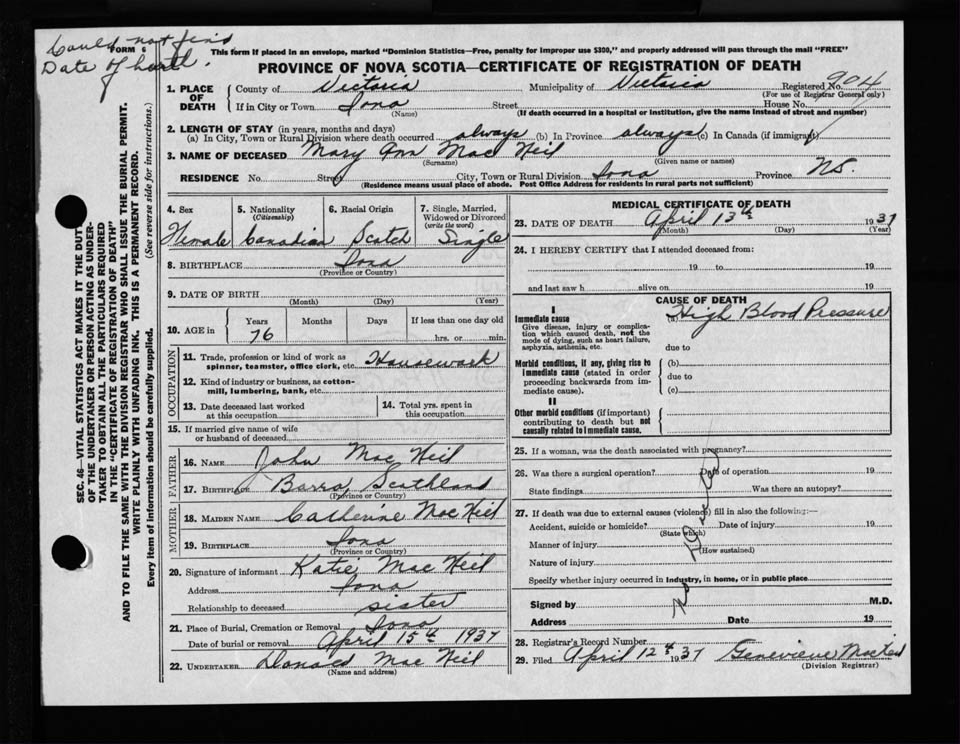 Could not find
Date of birth.
FORM 6
This form if placed in an envelope, marked "Dominion Statistics—Free, penalty for improper use $300," and properly addressed will pass through the mail "FREE"
PROVINCE OF NOVA SCOTIA—CERTIFICATE OF REGISTRATION OF DEATH
SEC. 46—VITAL STATISTICS ACT MAKES IT THE DUTY
OF THE UNDERTAKER OR PERSON ACTING AS UNDER-
TAKER TO OBTAIN ALL THE PARTICULARS REQUIRED
IN THE "CERTIFICATE OF REGISTRATION OF DEATH"
AND TO FILE THE SAME WITH THE DIVISION REGISTRAR WHO SHALL ISSUE THE BURIAL PERMIT.
WRITE PLAINLY WITH UNFADING INK. THIS IS A PERMANENT RECORD.
Every item of information should be carefully supplied. (See reverse side for instructions.)
1. PLACE OF DEATH
County of Victoria Municipality of Victoria Registered No. 904
(For use of Registrar General only)
If in City or Town Iona Street House No.
(Name) (If death occurred in a hospital or institution, give the name instead of street and number)
2. LENGTH OF STAY (in years, months and days)
(a) In City, Town or Rural Division where death occurred always (b) In Province always (c) In Canada (if immigrant)
3. NAME OF DECEASED Mary Ann Mac Neil
(Surname) (Given name or names)
RESIDENCE No. Street City, Town or Rural Division Iona Province N.S.
(Residence means usual place of abode. Post Office Address for residents in rural parts not sufficient)
4. Sex 5. Nationality (Citizenship) 6. Racial Origin 7. Single, Married, Widowed or Divorced (write the word)
Female Canadian Scotch Single
8. BIRTHPLACE Iona
(Province or Country)
9. DATE OF BIRTH
(Month) (Day) (Year)
10. AGE in Years Months Days If less than one day old
76 hrs. or min.
OCCUPATION
11. Trade, profession or kind of work as
spinner, teamster, office clerk, etc. Housework
12. Kind of industry or business, as cotton-
mill, lumbering, bank, etc.
13. Date deceased last worked
at this occupation
14. Total yrs. spent in
this occupation
15. If married give name of wife
or husband of deceased
FATHER
16. NAME John Mac Neil
17. BIRTHPLACE Barra Scothland
(Province or Country)
MOTHER
18. MAIDEN NAME Catherine MacNeil
19. BIRTHPLACE Iona
(Province or Country)
20. Signature of informant Katie Mac Neil
Address Iona
Relationship to deceased sister
21. Place of Burial, Cremation or Removal Iona
Date of burial or removal April 15th 1937
22. UNDERTAKER Donald Mac Neil
(Name and address)
MEDICAL CERTIFICATE OF DEATH
23. DATE OF DEATH April 13th 1937
(Month) (Day) (Year)
24. I HEREBY CERTIFY that I attended deceased from:
19 to 19
and last saw h alive on 19
CAUSE OF DEATH
I
Immediate cause (a) High Blood Pressure
Give disease, injury or complica-
tion which caused death, not the
mode of dying, such as heart failure,
asphyxia, asthenia, etc.
due to
Morbid conditions, if any, giving rise to
immediate cause (stated in order
proceeding backwards from im-
mediate cause).
(b)
due to
(c)
II
Other morbid conditions (if important)
contributing to death but not
causally related to immediate cause.
25. If a woman, was the death associated with pregnancy?
26. Was there a surgical operation? Date of operation 19
State findings Was there an autopsy?
27. If death was due to external causes (violence) fill in also the following:—
Accident, suicide or homicide? Date of injury 19
(State which)
Manner of injury
(How sustained)
Nature of injury
Specify whether injury occurred in industry, in home, or in public place
No Doctor
Signed by M.D.
Address Date 19
28. Registrar's Record Number
29. Filed April 12th 1937 Genevieve MacNeil
(Division Registrar)